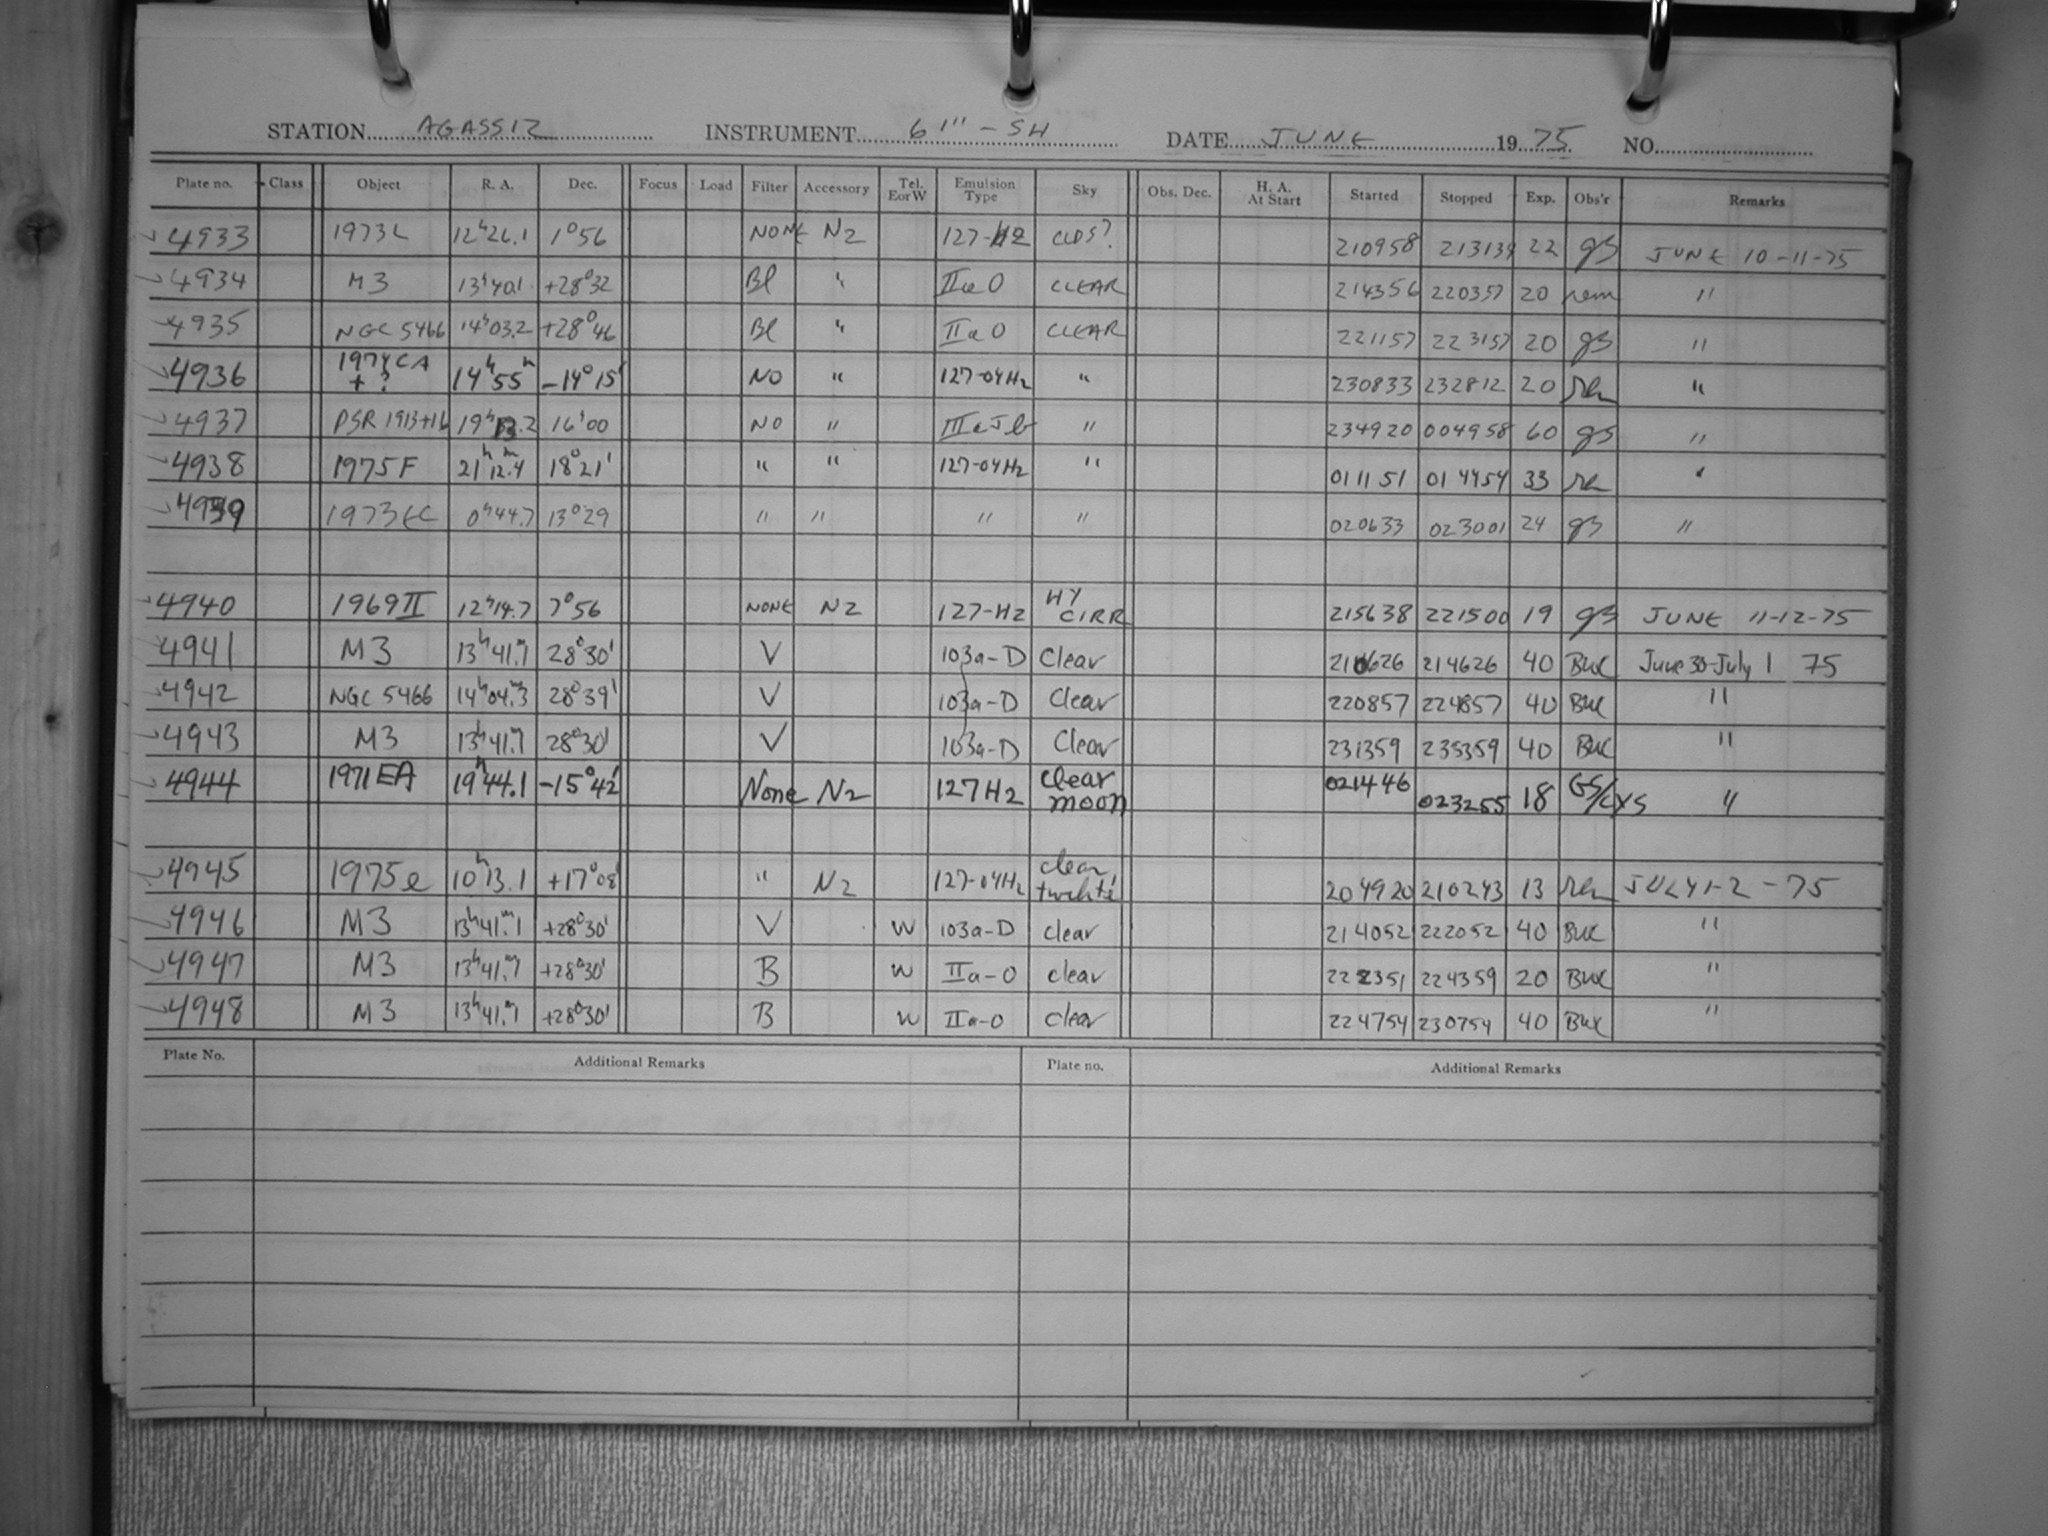 STATION AGASSIZ INSTRUMENT 61" - SH DATE JUNE 1975 NO.
Plate no. Class Object R. A. Dec. Focus Load Filter Accessory Tel. E or W Emulsion Type Sky Obs. Dec. H. A. At Start Started Stopped Exp. Obs'r Remarks
4933 1973L 12ʰ26.1 1°56 NONE N2 127-H2 CLDS? 210958 213139 22 gs JUNE 10-11-75
4934 M3 13ʰ40.1 +28°32 Bl " IIaO CLEAR 214356 220357 20 rem "
4935 NGC 5466 14ʰ03.2 +28°46 Bl " IIaO CLEAR 221157 223157 20 gs "
4936 CA + ? 14ʰ55ᵐ -14°15' NO " 127-04H2 " 230833 232812 20 "
4937 PSR 1913+16 19ʰ13.2 16°00 NO " " 234920 004958 60 gs "
4938 1975F 21ʰ12.4ᵐ 18°21' " " 127-04H2 " 011151 014454 33 "
4939 0ʰ44.7 13°29 " " " " 020633 023001 24 gs "
4940 1969II 12ʰ14.7 7°56 NONE N2 127-H2 HY CIRR 215638 221500 19 gs JUNE 11-12-75
4941 M3 13ʰ41.ᵐ1 28°30' V 103a-D Clear 210626 214626 40 June 30-July 1 75
4942 NGC 5466 14ʰ04.ᵐ3 28°39' V 103a-D Clear 220857 224857 40 "
4943 M3 13ʰ41.ᵐ1 28°30' V 103a-D Clear 231359 235359 40 "
4944 1971EA 19ʰ44.1 -15°42' None N2 127H2 clear moon 021446 023255 18 GS/CYS "
4945 1975e 10ʰ13.1 +17°08' " N2 127-04H2 clear 204920 210243 13 JULY 1-2-75
4946 M3 13ʰ41.ᵐ1 +28°30' V W 103a-D clear 214052 222052 40 "
4947 M3 13ʰ41.ᵐ1 +28°30' B W IIa-O clear 222351 224359 20 "
4948 M3 13ʰ41.ᵐ1 +28°30' B W IIa-O clear 224754 230754 40 "
Plate No. Additional Remarks Plate no. Additional Remarks